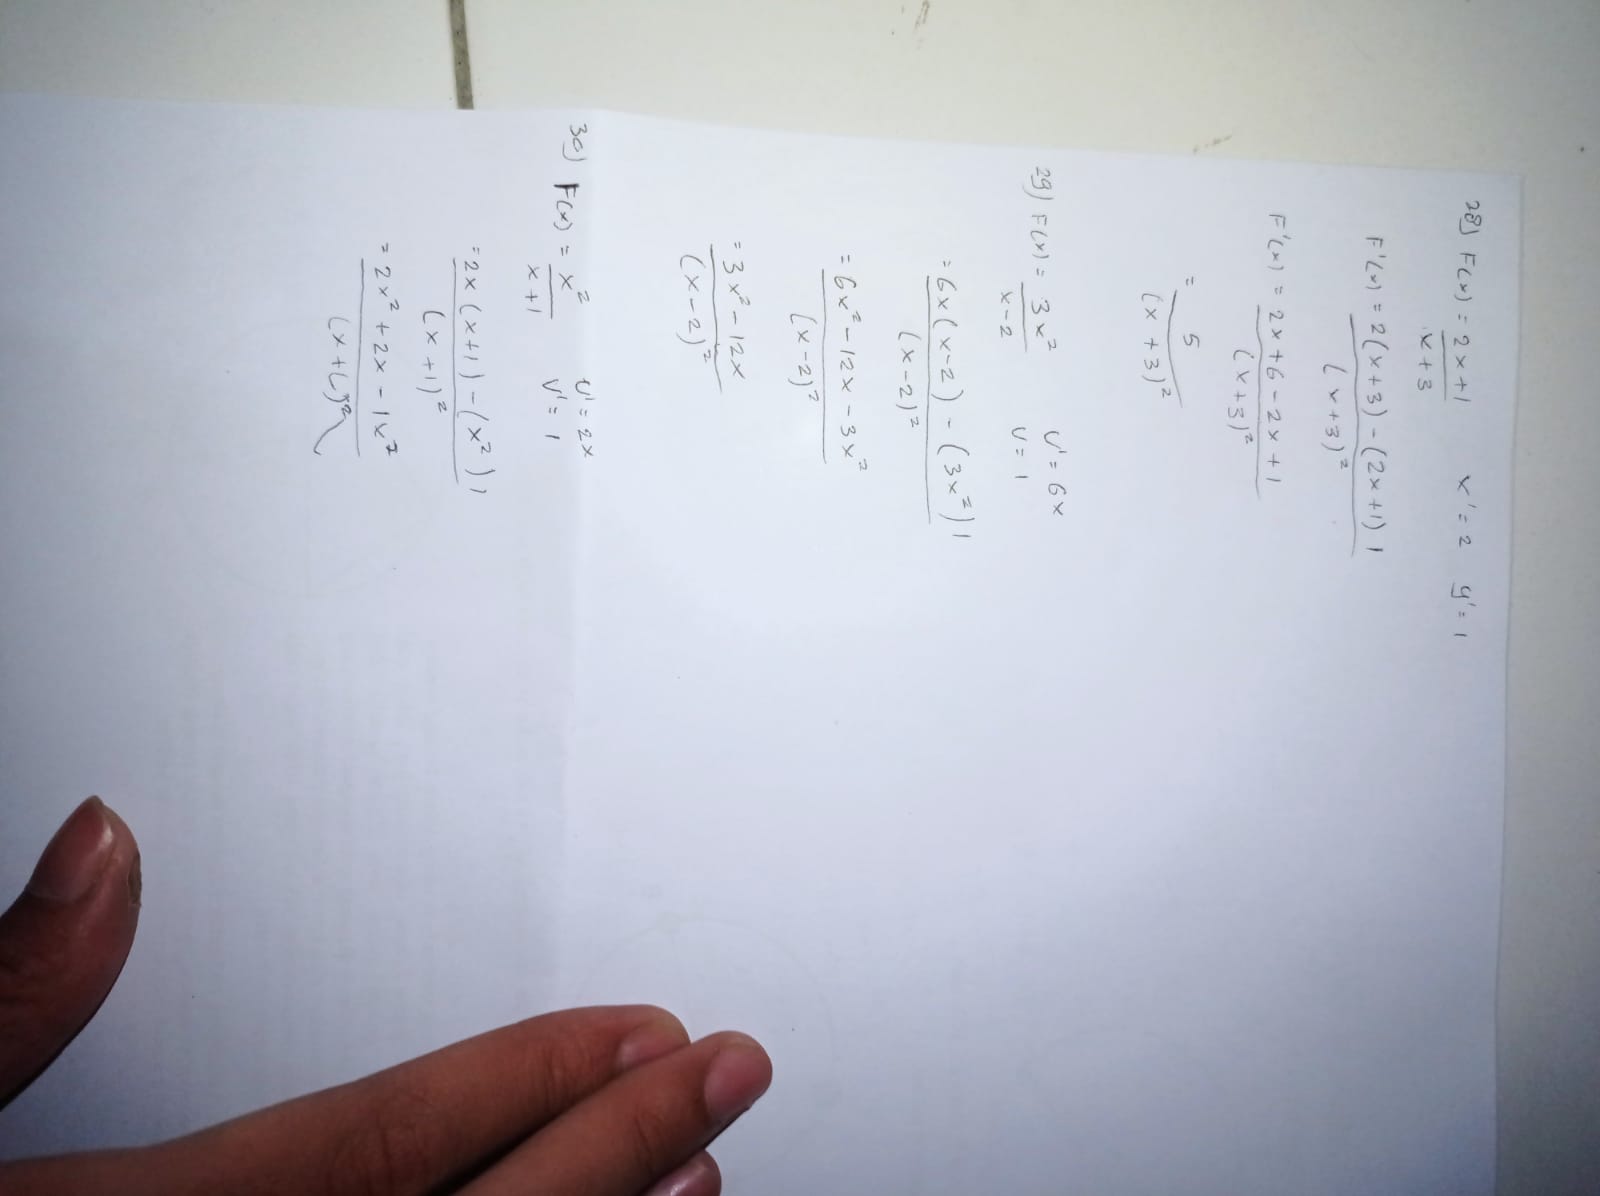 28) F(x) = 2x+1 x'= 2 y'= 1
x+3
F'(x) = 2(x+3) - (2x+1) 1
(x+3)²
F'(x) = 2x+6-2x+1
(x+3)²
= 5
(x+3)²
29) F(x) = 3x² U'= 6x
x-2 U= 1
= 6x(x-2) - (3x²) 1
(x-2)²
= 6x²-12x-3x²
(x-2)²
= 3x²-12x
(x-2)²
30) F(x) = x² U'= 2x
x+1 V'= 1
= 2x(x+1)-(x²) 1
(x+1)²
= 2x²+2x-1x²
(x+1)²